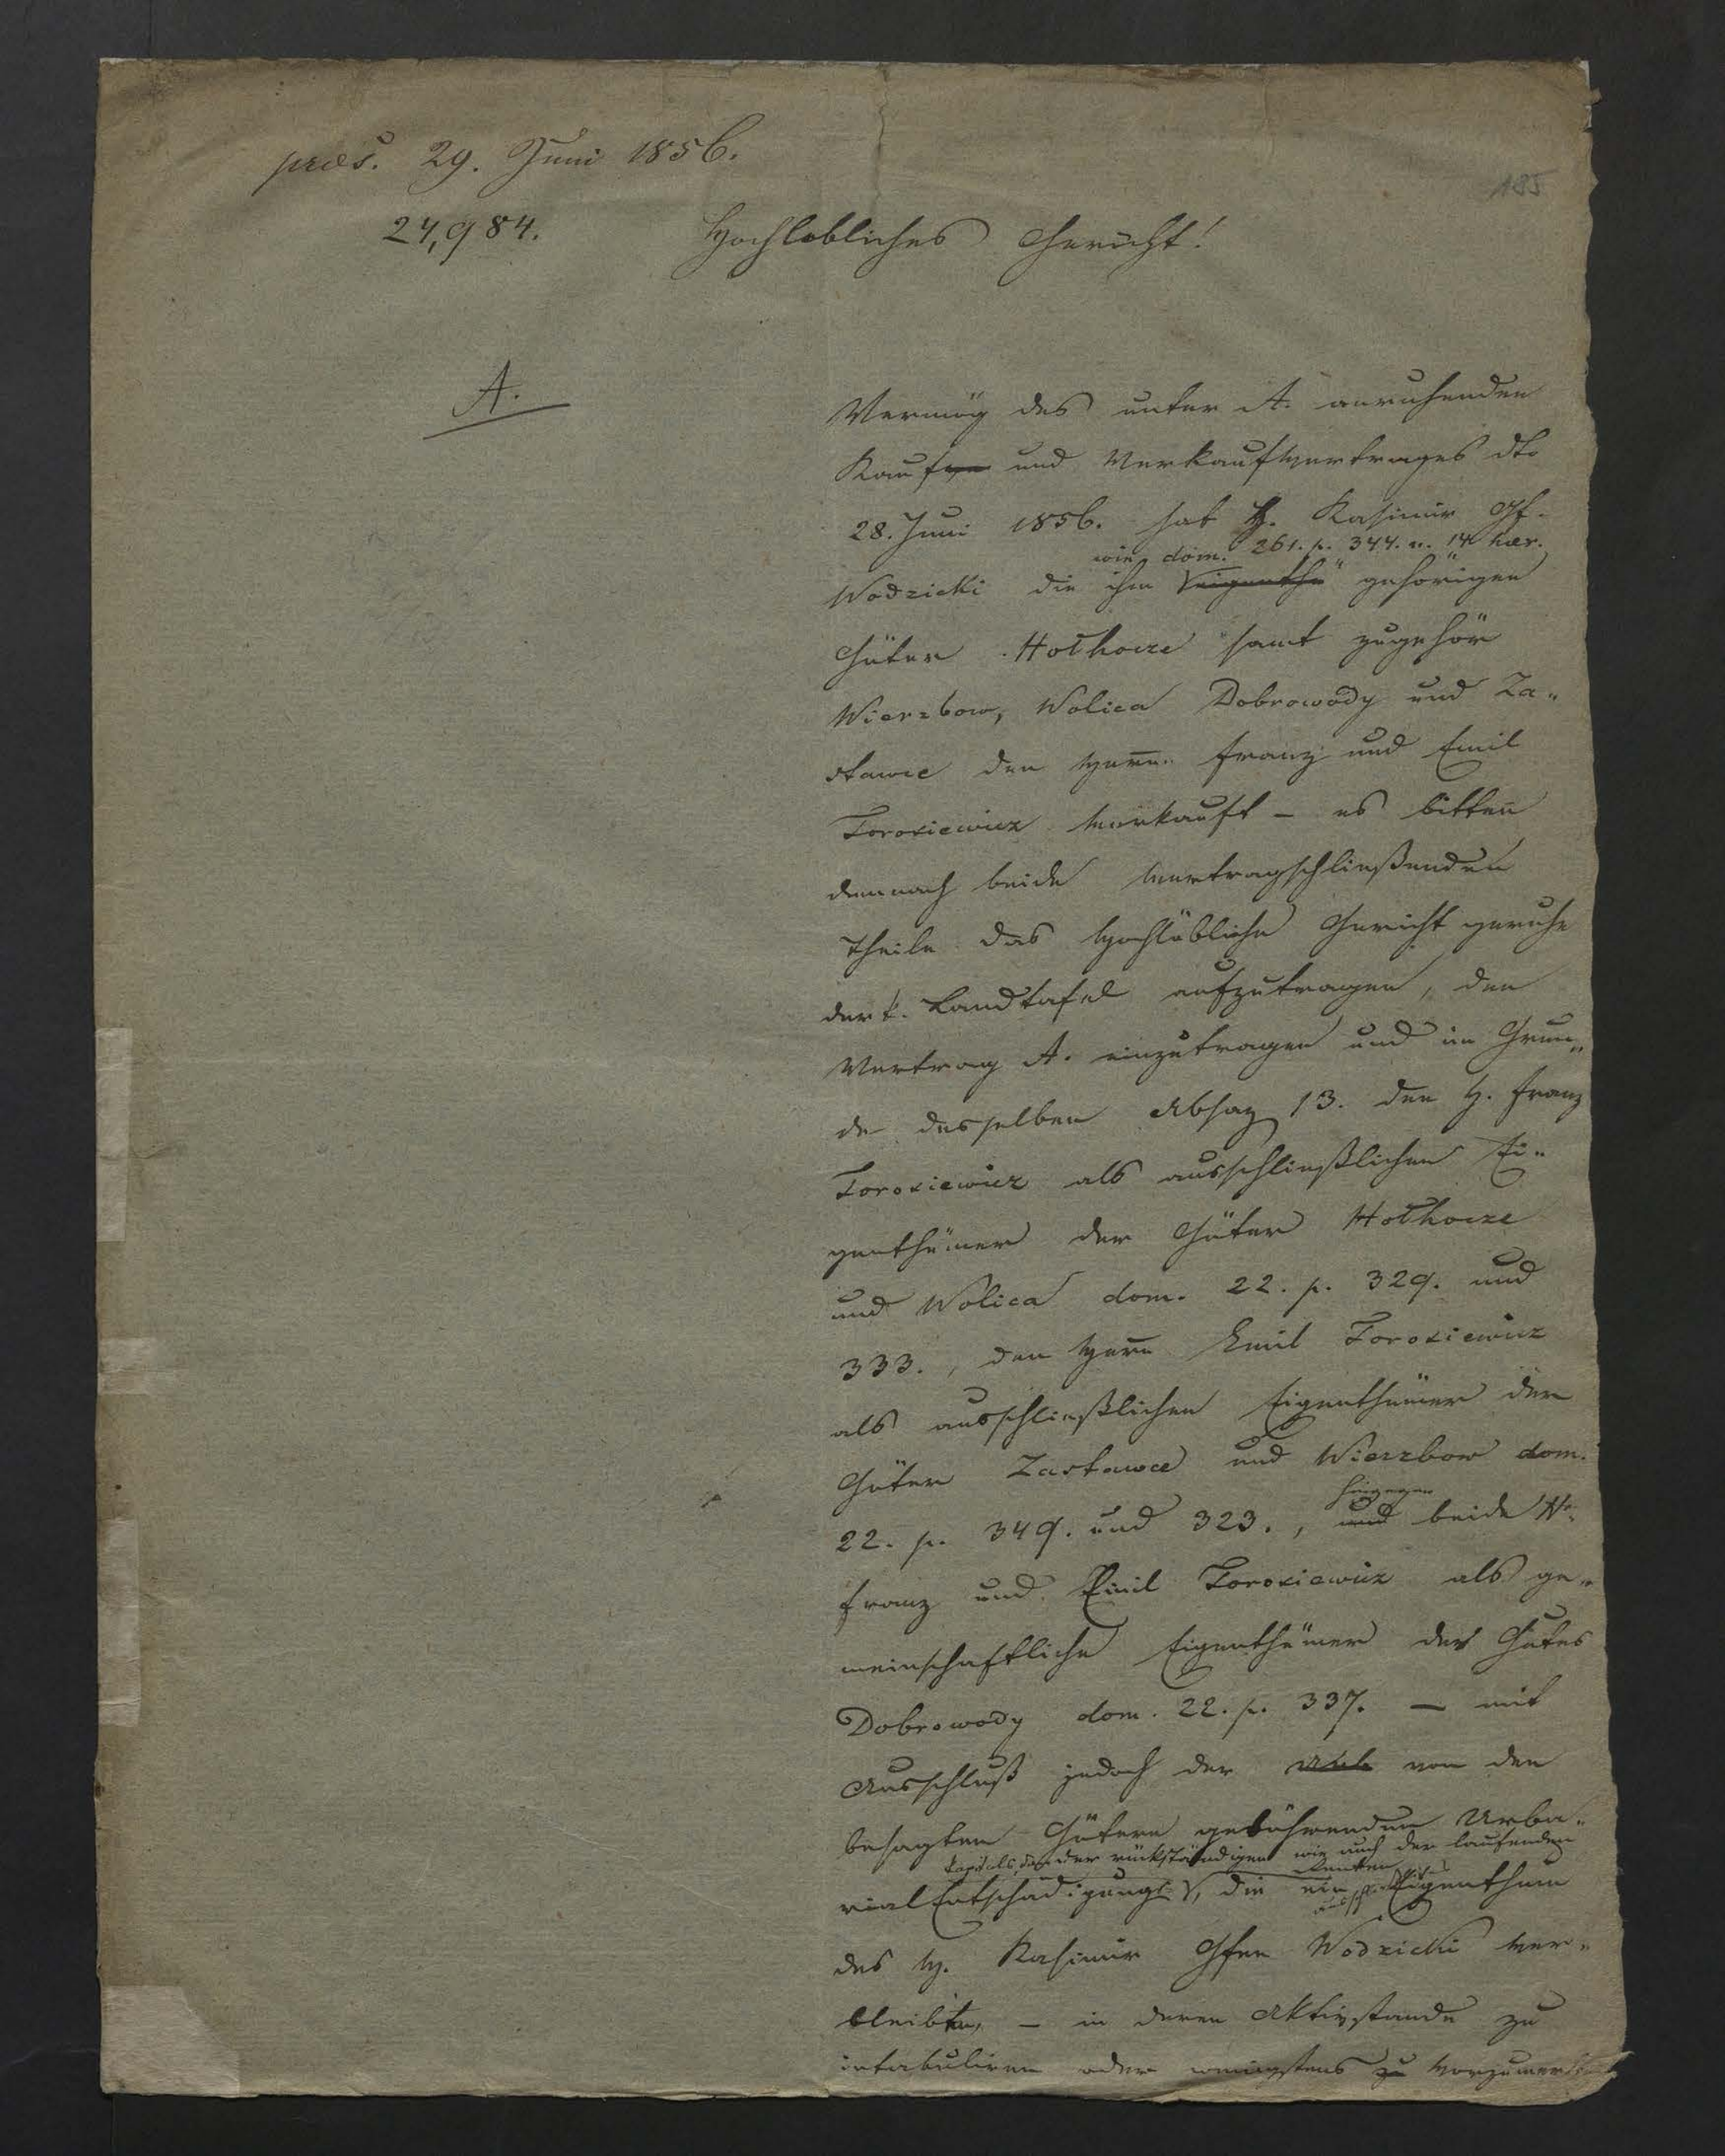 praes. 29. Juni 1856.
185
24,984.
Hochlöbliches Gericht!
A.
Vermög des unter A. anruhenden
Kauf und Verkaufvertrages dto
28. Juni 1856. hat H. Kasimir Gf.
wie dom. 261. p. 344. n. 14 haer.
Wodzicki die ihm eigenth gehörigen
Güter Hołhocze samt zugehör
Wierzbow, Wolica Dobrowody und Za„
stawce den Herrn Franz und Emil
Torosiewicz verkauft – es bitten
demnach beide vertragschließenden
Theile das Hochlöbliche Gericht geruhe
der k. Landtafel aufzutragen, den
Vertrag A. einzutragen und im Grun„
de desselben Absaz 13. den H. Franz
Torosiewicz als ausschließlichen Ei„
genthümer der Güter Hołhocze
und Wolica dom. 22. p. 329. und
333., den Herrn Emil Torosiewicz
als ausschließlichen Eigenthümer der
Güter Zastawce und Wierzbow dom.
hingegen
22. p. 349. und 323., und beide Hr.
Franz und Emil Torosiewicz als ge„
meinschaftliche Eigenthümer des Gutes
Dobrowody dom. 22. p. 337. — mit
Ausschluß jedoch der von den
besagten Gütern gebührenden Urba„
Kapitals, der rückständigen wie auch der laufenden
Renten
rial Entschädigungs, die ein Eigenthum
des H. Kasimir Gfen Wodzicki ver„
bleiben, — in deren Aktivstande zu
intabuliren oder wenigstens zu vorzumerken